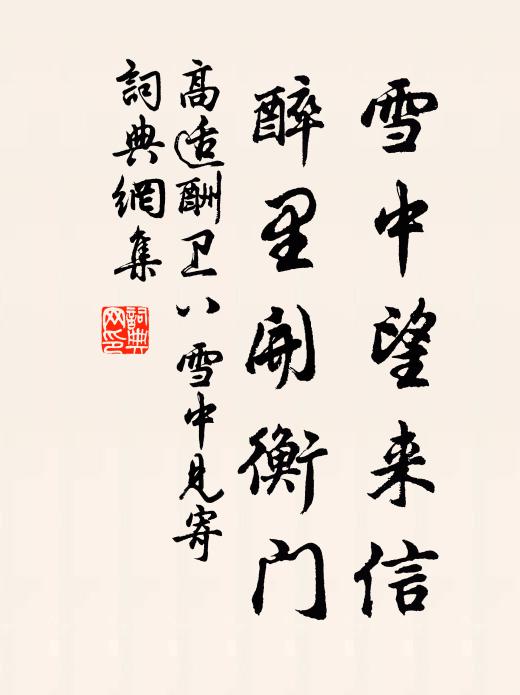 雪中望来信
醉里开衡门
高适酬卫八雪中见寄
詞典網集
詞典网印